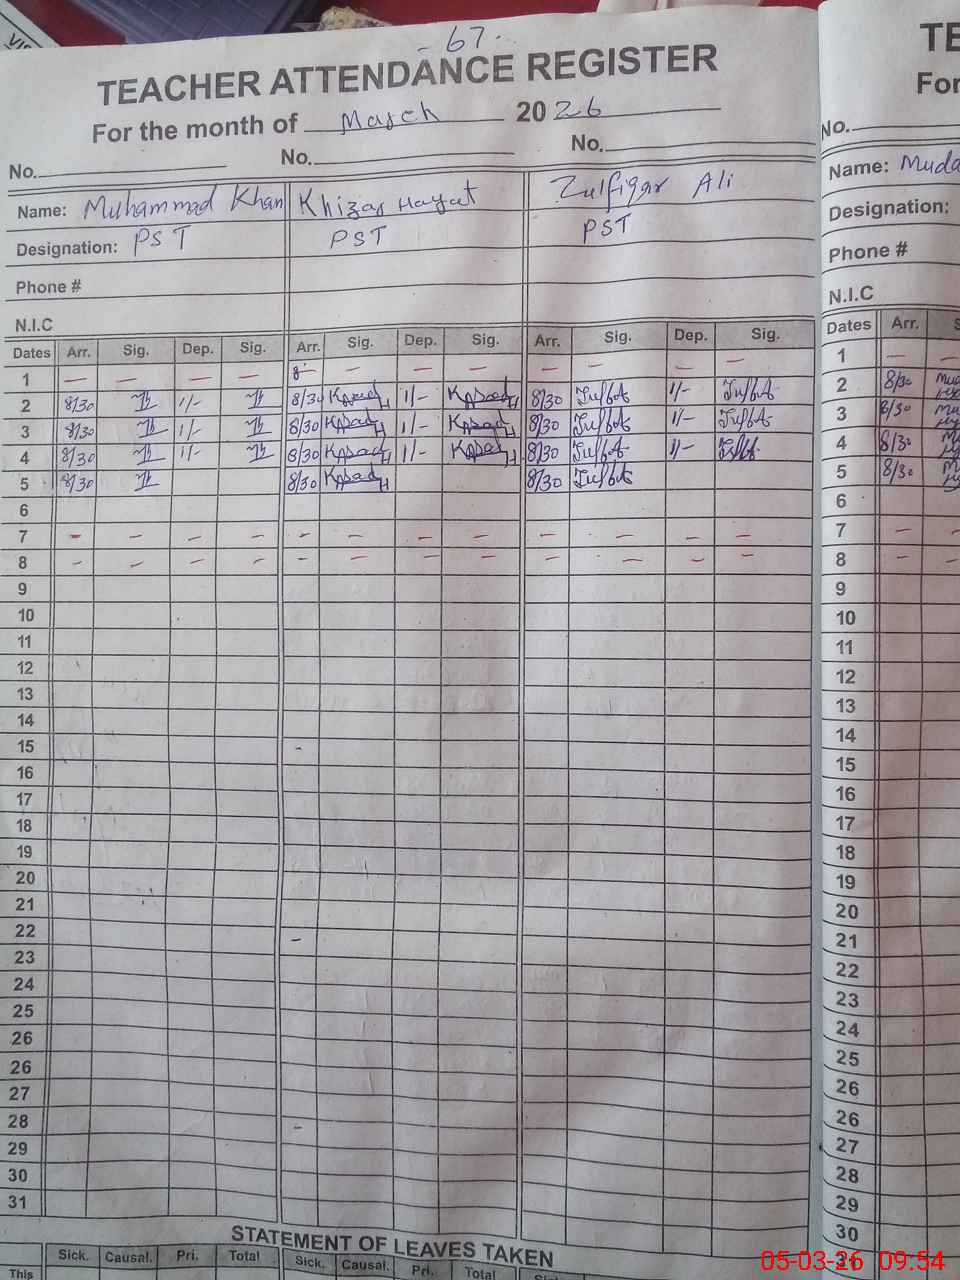 - 67 -
TEACHER ATTENDANCE REGISTER
For the month of March 2026
No. No. No.
Name: Muhammad Khan Khizar Hayat Zulfiqar Ali
Designation: PST PST PST
Phone #
N.I.C
Dates Arr. Sig. Dep. Sig. Arr. Sig. Dep. Sig. Arr. Sig. Dep. Sig.
1 — — — — — — — — — — —
2 8/30 1/- 8/30 1/- 8/30 1/-
3 8/30 1/- 8/30 1/- 8/30 1/-
4 8/30 1/- 8/30 1/- 8/30 1/-
5 8/30 8/30 8/30
6
7 - - - - - - - - - - - -
8 - - - - - - - - - - - -
9
10
11
12
13
14
15 -
16
17
18
19
20
21
22 -
23
24
25
26
26
27
28 -
29
30
31
STATEMENT OF LEAVES TAKEN
Sick. Causal. Pri. Total Sick. Causal. Pri. Total
This
TE
For
No.
Name: Muda
Designation:
Phone #
N.I.C
Dates Arr. S
1 — —
2 8/30
3 8/30
4 8/30
5 8/30
6
7 — -
8 - -
9
10
11
12
13
14
15
16
17
18
19
20
21
22
23
24
25
26
26
27
28
29
30
31
05-03-26 09:54